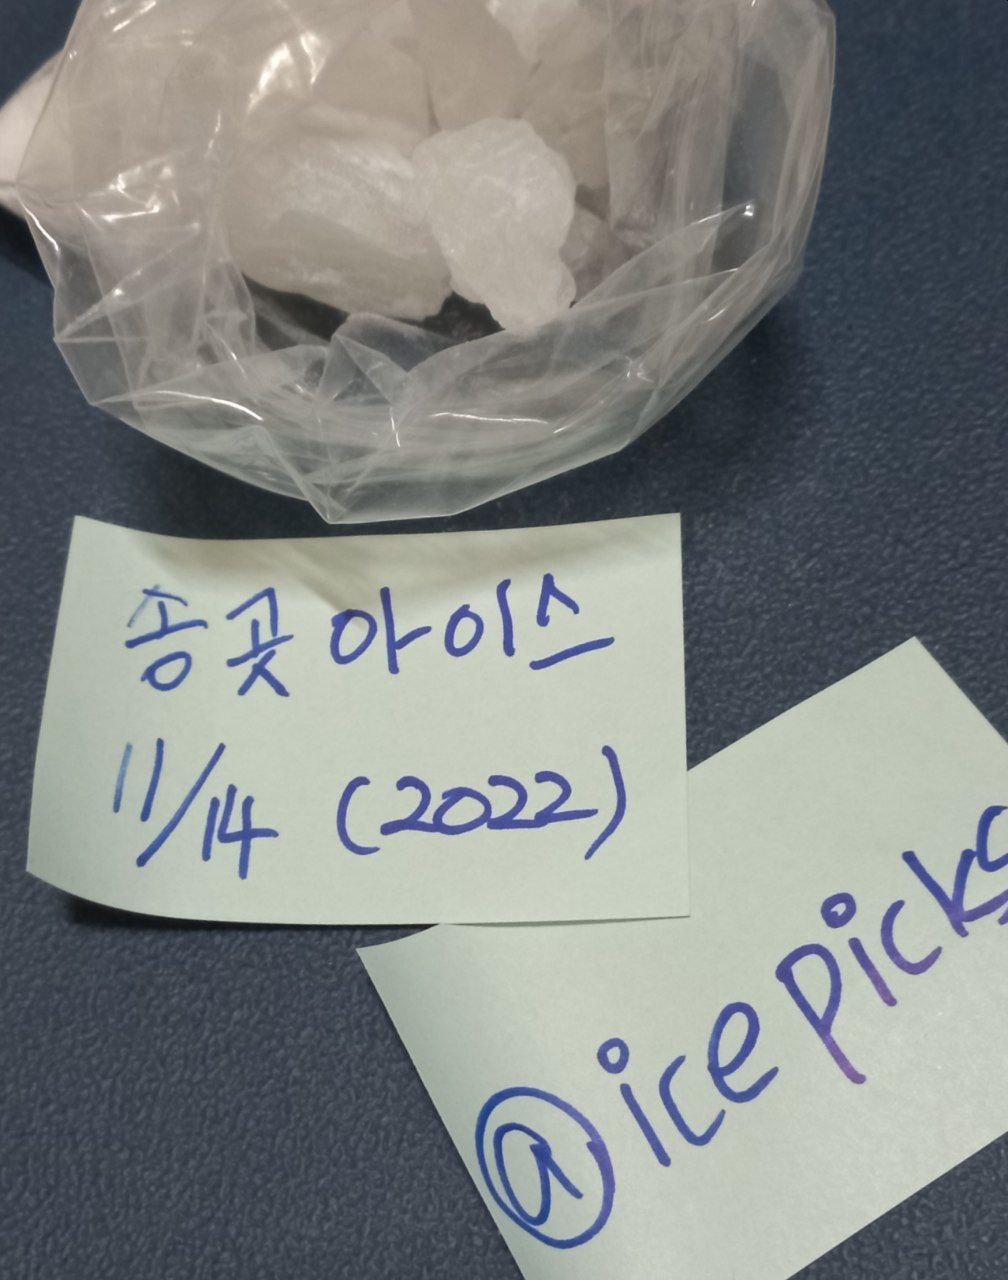 송곳아이스
11/14 (2022)
@icepicks